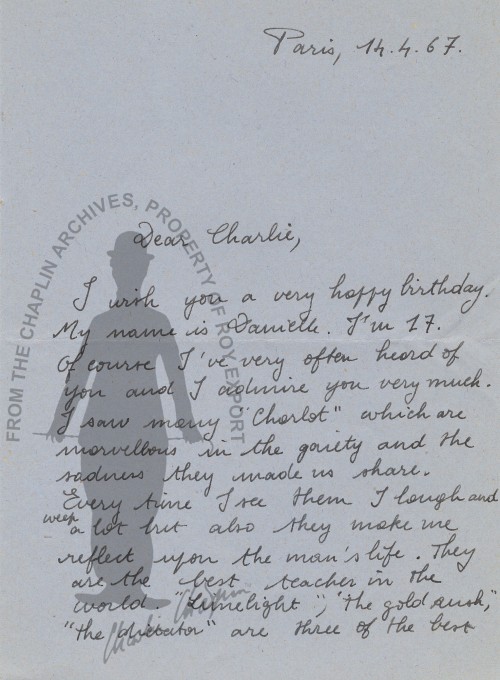 Paris, 14.4.67.
Dear Charlie,
I wish you a very happy birthday.
My name is Danielle. I'm 17.
Of course I've very often heard of
you and I admire you very much.
I saw many "Charlot" which are
marvellous in the gaiety and the
sadness they made us share.
Every time I see them I laugh and
weep a lot but also they make me
reflect upon the man's life. They
are the best teacher in the
world. "Limelight", "the gold rush",
"the dictator" are three of the best
FROM THE CHAPLIN ARCHIVES, PROPERTY OF ROY EXPORT
Charlie Chaplin